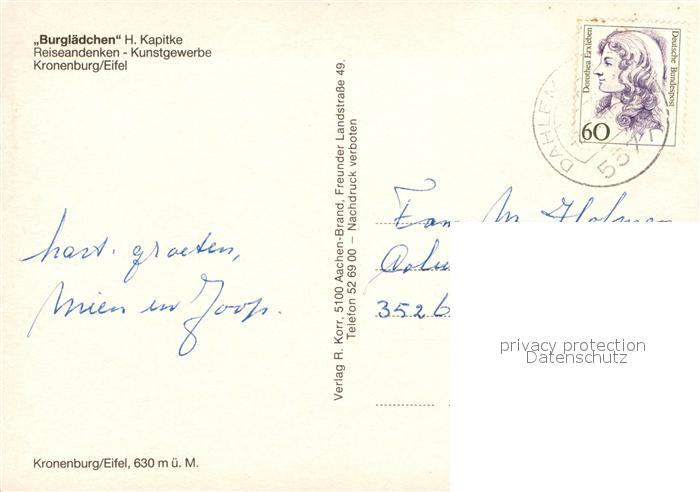 „Burglädchen“ H. Kapitke
Reiseandenken - Kunstgewerbe
Kronenburg/Eifel
Dorothea Erxleben
Deutsche Bundespost
60
DAHLEM
Verlag R. Korr, 5100 Aachen-Brand, Freunder Landstraße 49.
Telefon 52 69 00 – Nachdruck verboten
hart. groeten,
Mien en Joop.
Fam.
352
privacy protection
Datenschutz
Kronenburg/Eifel, 630 m ü. M.